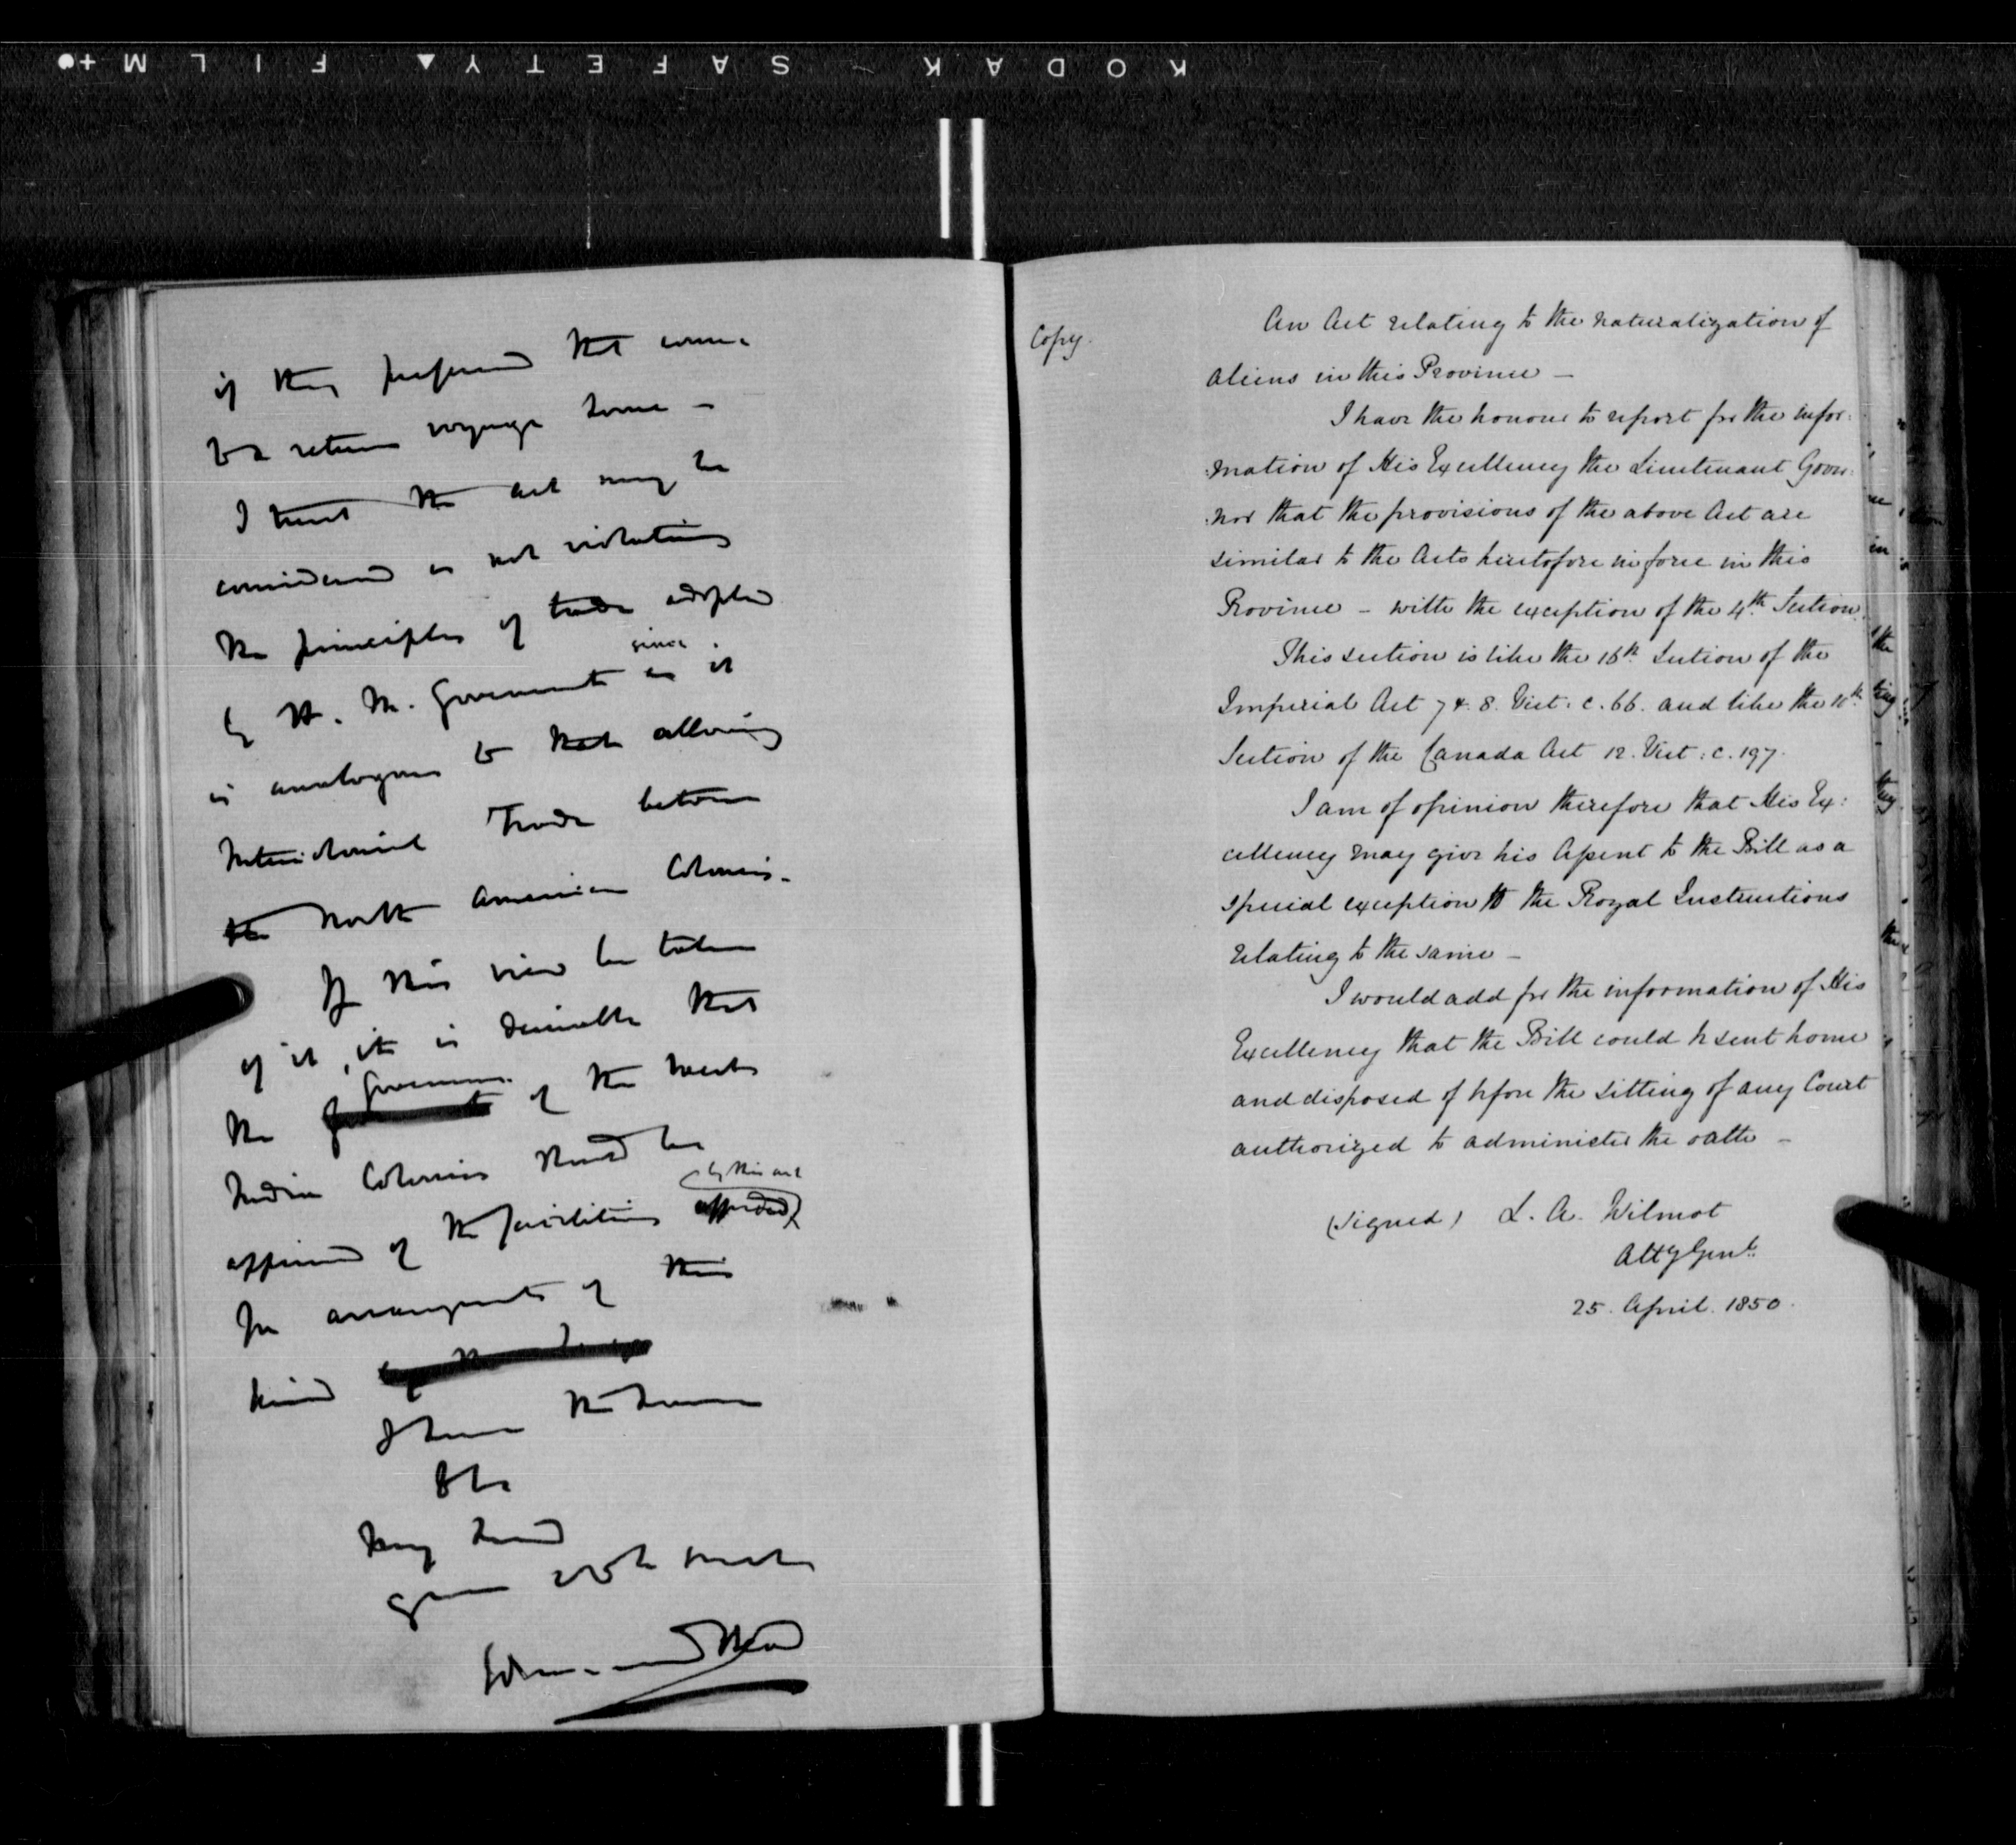 KODAK SAFETY FILM
if they preferred that course
to a return voyage home –
I trust the act may be
considered as not violating
the principles of trade adopted
since
by H. M. Government as it
is analogous to that allowing
Intercolonial Trade between
the North American Colonies.
If this view be taken
of it, it is desirable that
Governors
the of the West
Indian Colonies should be
by this act
apprised of the facilities afforded
for arrangements of this
kind
I have the honor
&c
My Lord
Edmund Head
Copy.
An Act relating to the naturalization of
Aliens in this Province –
I have the honour to report for the infor:
:mation of His Excellency the Lieutenant Gover:
:nor that the provisions of the above Act are
similar to the Acts heretofore in force in this
Province – with the exception of the 4th Section.
This section is like the 16th Section of the
Imperial Act 7 & 8. Vict. c. 66. and like the
Section of the Canada Act 12. Vict: c. 197.
I am of opinion therefore that His Ex:
cellency may give his Assent to the Bill as a
special exception to the Royal Instructions
relating to the same –
I would add for the information of His
Excellency that the Bill could be sent home
and disposed of before the sitting of any Court
authorized to administer the oath –
(signed) L. A. Wilmot
Atty Genl.
25. April. 1850.